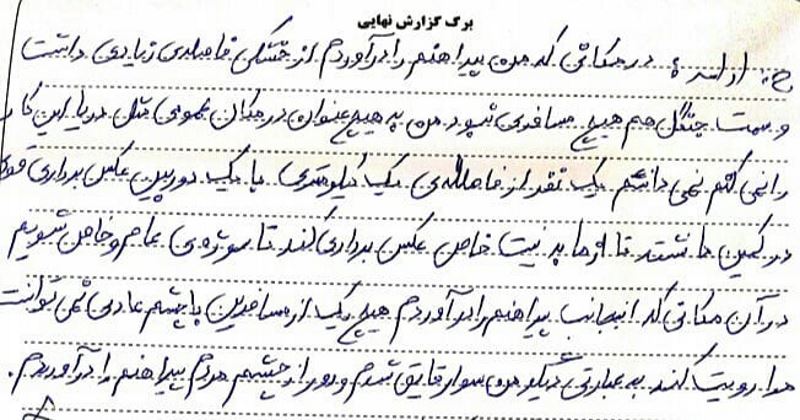 برگ گزارش نهایی
ج: ادامه؛ در مکانی که من پیراهنم را درآوردم از خشکی فاصله‌ی زیادی داشت
و سمت جنگل هم هیچ مسافری نبود من به هیچ عنوان در مکان عمومی مثل دریا این کار
را نمی کنم نمی دانستم یک نفر از فاصله‌ی یک کیلومتری با یک دوربین عکس برداری قوی
در کمین ما نشسته تا از ما به نیت خاص عکس برداری کند تا سوژه‌ی عام و خاص شویم
در آن مکانی که اینجانب پیراهنم را درآوردم هیچ یک از مسافرین با چشم عادی نمی توانست
مرا رویت کند به عبارتی دیگر من سوار قایق شدم و دور از چشم مردم پیراهنم را درآوردم.